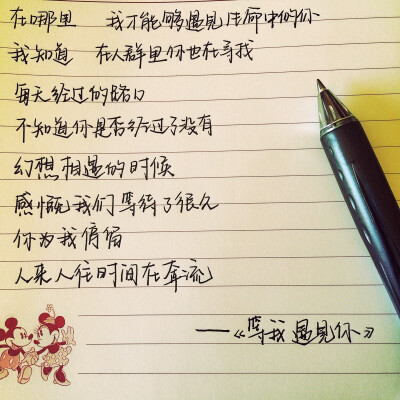 在哪里 我才能够遇见生命中的你
我知道 在人群里你也在寻找
每天经过的路口
不知道你是否经过了没有
幻想相遇的时候
感慨我们等待了很久
你为我停留
人来人往时间在奔流
——《等我遇见你》